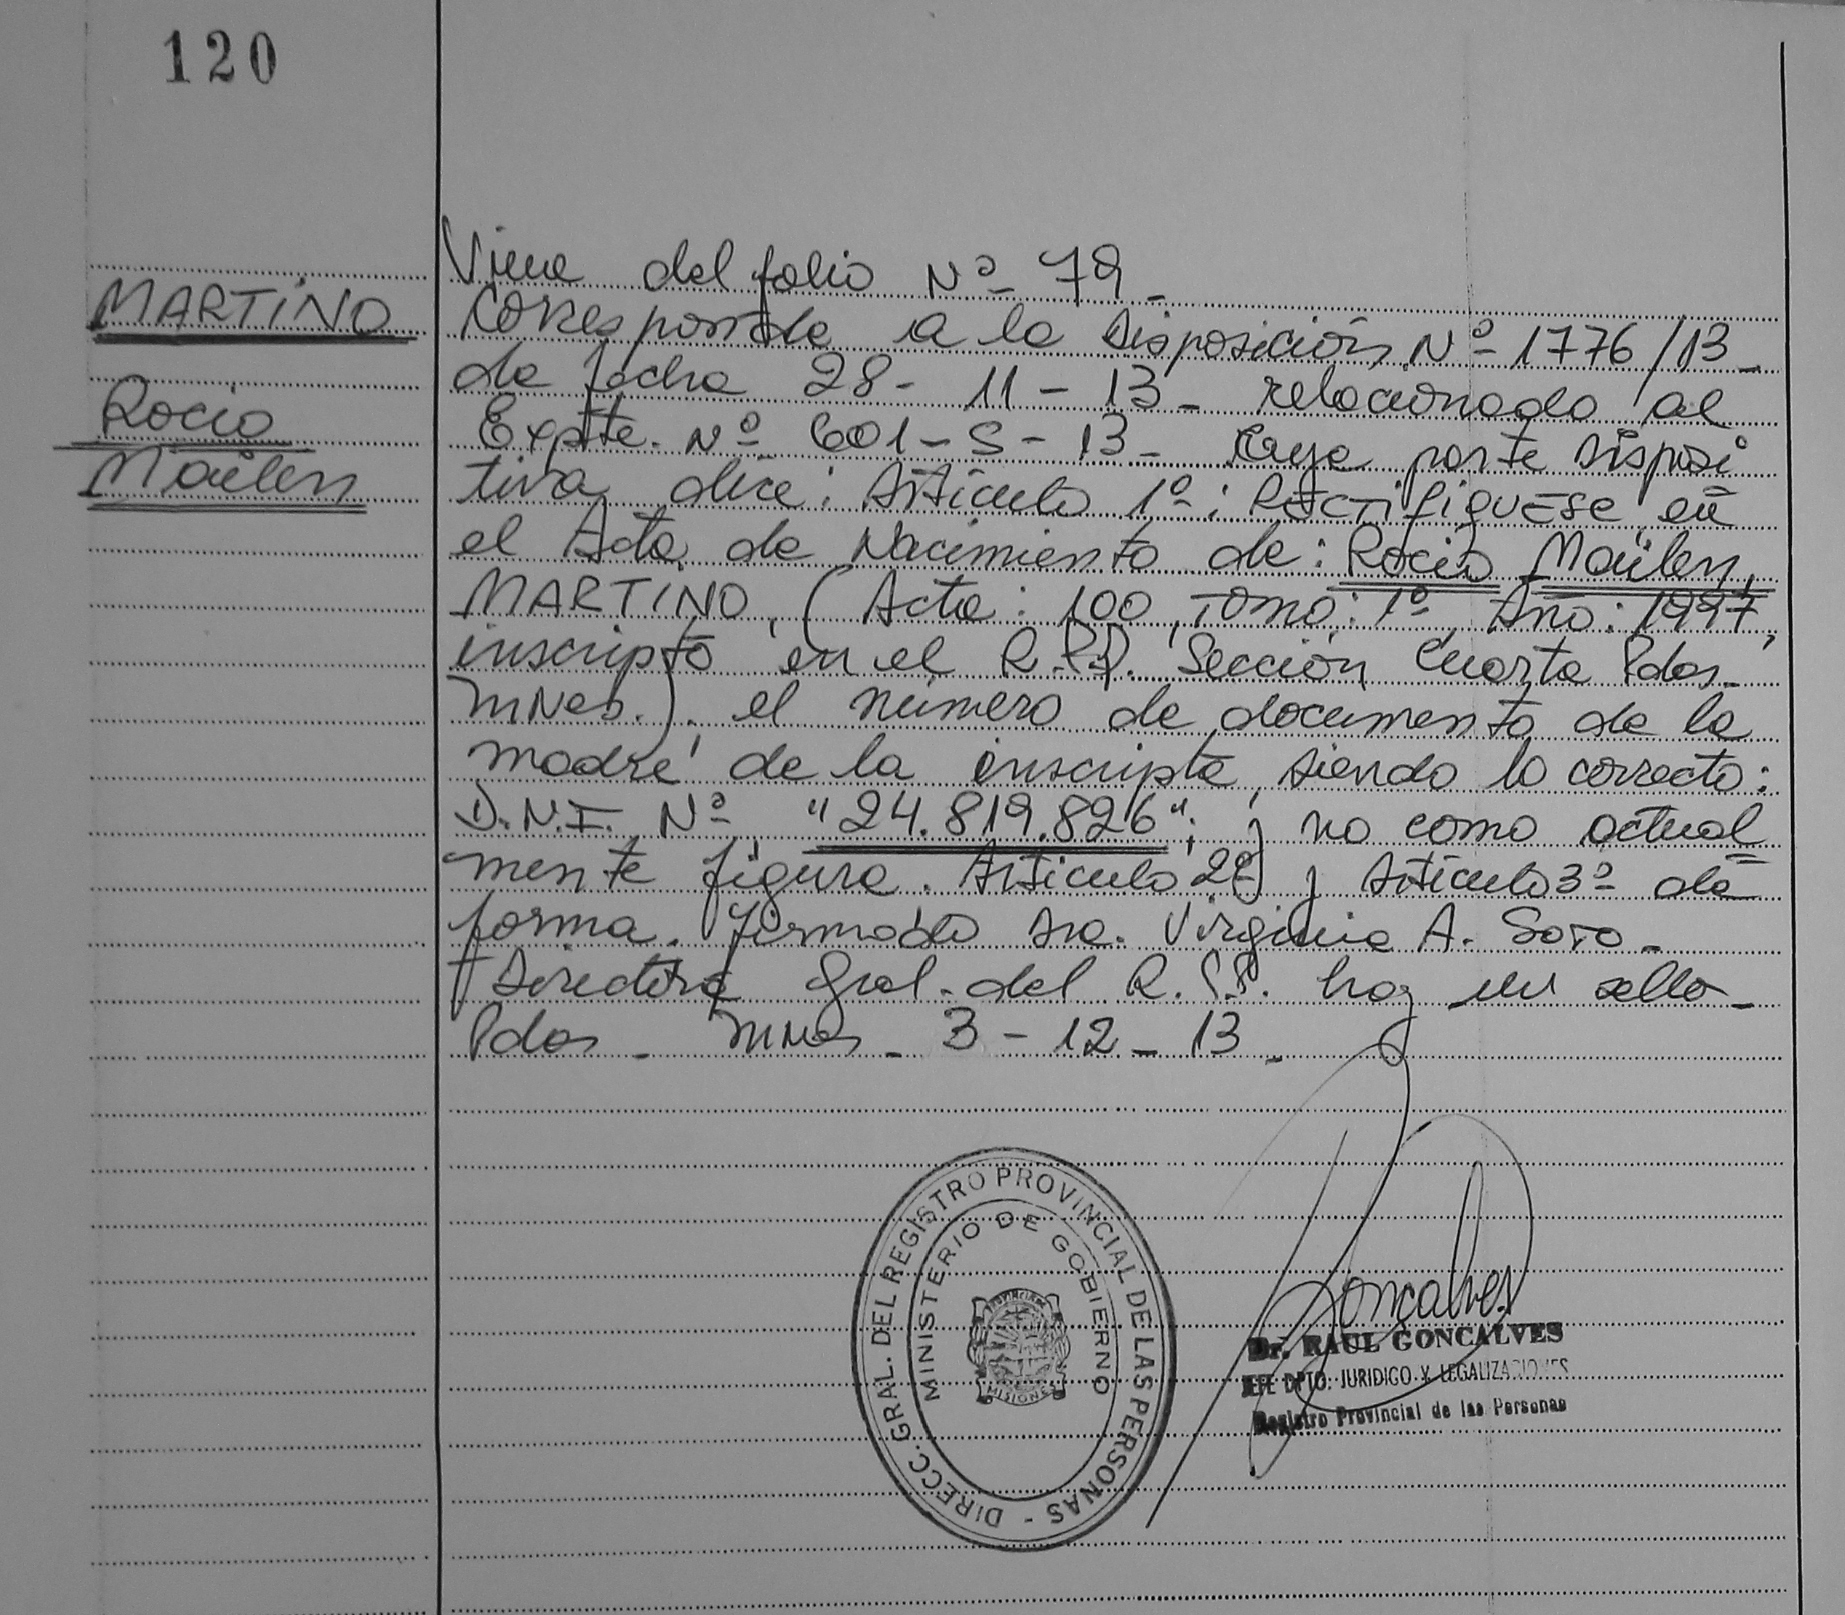 120
MARTINO
Rocio
Mailen
Viene del folio Nº 79 -
Corresponde a la Disposición Nº 1776/13 -
de fecha 28 - 11 - 13 - relacionado al
Expte. Nº 601 - S - 13 - Cuya parte Disposi
tiva dice: Artículo 1º: Rectifiquese en
el Acta de Nacimiento de: Rocio Mailen
MARTINO, (Acta: 100, Tomo: 1º, Año: 1997,
inscripto en el R.P.P. Sección Cuarta Pdas.
Mnes.). el número de documento de la
madre de la inscripta, siendo lo correcto:
D.N.I. Nº "24.819.826"; y no como actual
mente figura. Artículo 2º y Artículo 3º de
forma. Firmado Dra. Virginia A. Soto -
Directora Gral. del R.P.P. hay un sello -
Pdas - Mnes - 3 - 12 - 13 -
DIRECC. GRAL. DEL REGISTRO PROVINCIAL DE LAS PERSONAS -
MINISTERIO DE GOBIERNO
PROVINCIA DE
MISIONES
Goncalves
Dr. RAUL GONCALVES
JEFE DPTO. JURIDICO Y LEGALIZACIONES
Registro Provincial de las Personas